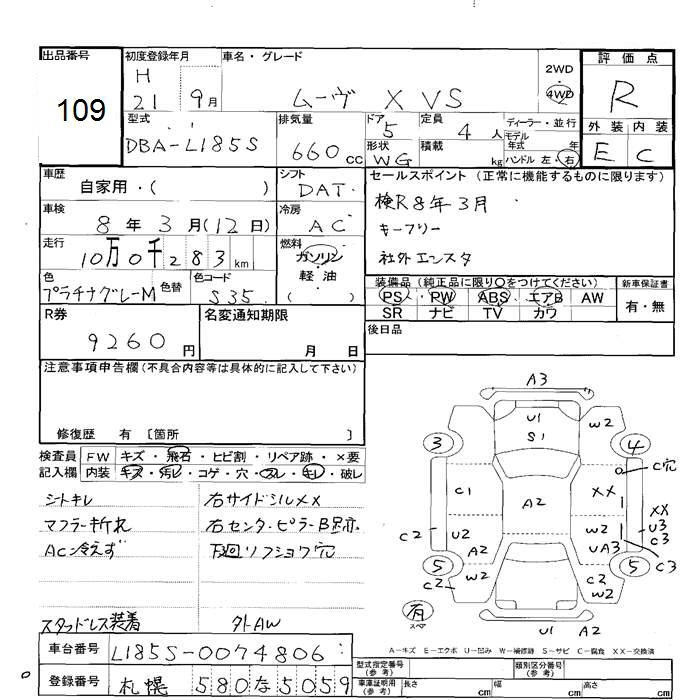 出品番号
109
初度登録年月
H
21 9月
車名・グレード
ムーヴ X VS
2WD
4WD
評価点
R
外装 内装
E C
型式
DBA-L185S
排気量
660cc
ドア
5
形状
WG
定員
4人
積載
kg
ディーラー・並行
モデル
年式 年
ハンドル 左・右
車歴
自家用・( )
シフト
DAT
セールスポイント(正常に機能するものに限ります)
検R8年3月
キーフリー
社外エンスタ
車検
8年3月(12日)
冷房
AC
走行
10万0千283km
燃料
ガソリン
軽・油
( )
色
プラチナグレーM
色替
色コード
S35
装備品(純正品に限り○をつけてください)
PS PW ABS エアB AW
SR ナビ TV カワ
新車保証書
有・無
R券
9260円
名変通知期限
月 日
後日品
注意事項申告欄(不具合内容等は具体的に記入して下さい)
修復歴 有 〔箇所 〕
検査員
記入欄
FW キズ・飛石・ヒビ割・リペア跡・×要
内装 キズ・汚レ・コゲ・穴・スレ・キレ・破レ
シートキレ
マフラー折れ
AC冷えず
スタッドレス装着
右サイドシルXX
右センターピラーB跡
下廻リフショウ穴
外AW
A3
U1
S1
W2
3
4
C穴
C1
A2
XX
XX
U3
C3
C2
U2
A2
W2
UA3
C3
5
5
C2
W2
C2
W2
有
スペア
U1 A2
A-キズ E-エクボ U-凹み W-補修跡 S-サビ C-腐食 XX-交換済
車台番号
L185S-0074806
登録番号
札幌 580な5059
型式指定番号
(参考)
類別区分番号
(参考)
車庫証明用
(参考)
長さ cm
幅 cm
高さ cm